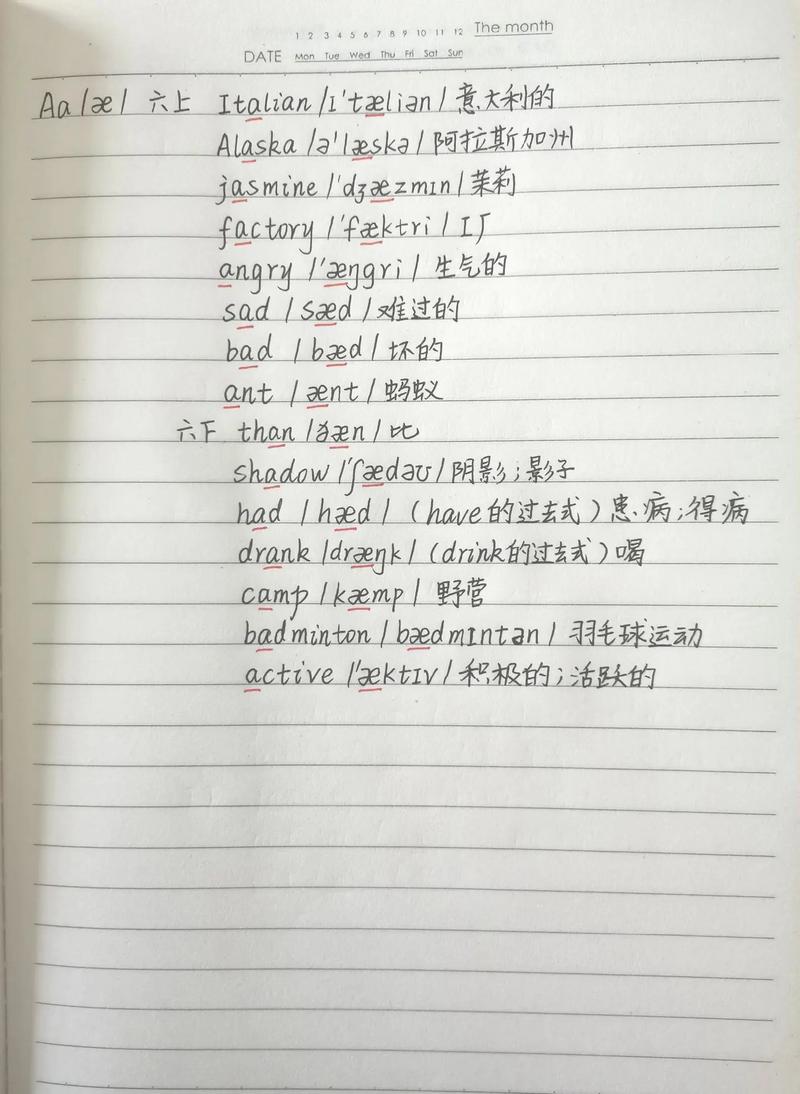 1 2 3 4 5 6 7 8 9 10 11 12 The month
DATE Mon Tue Wed Thu Fri Sat Sun
Aa /æ/ 六上 Italian /ɪ'tæliən/ 意大利的
Alaska /ə'læskə/ 阿拉斯加州
jasmine /'dʒæzmɪn/ 茉莉
factory /'fæktri/ 工厂
angry /'æŋgri/ 生气的
sad /sæd/ 难过的
bad /bæd/ 坏的
ant /ænt/ 蚂蚁
六下 than /ðæn/ 比
shadow /'ʃædəʊ/ 阴影;影子
had /hæd/ (have的过去式)患病;得病
drank /dræŋk/ (drink的过去式)喝
camp /kæmp/ 野营
badminton /bædmɪntən/ 羽毛球运动
active /'æktɪv/ 积极的;活跃的